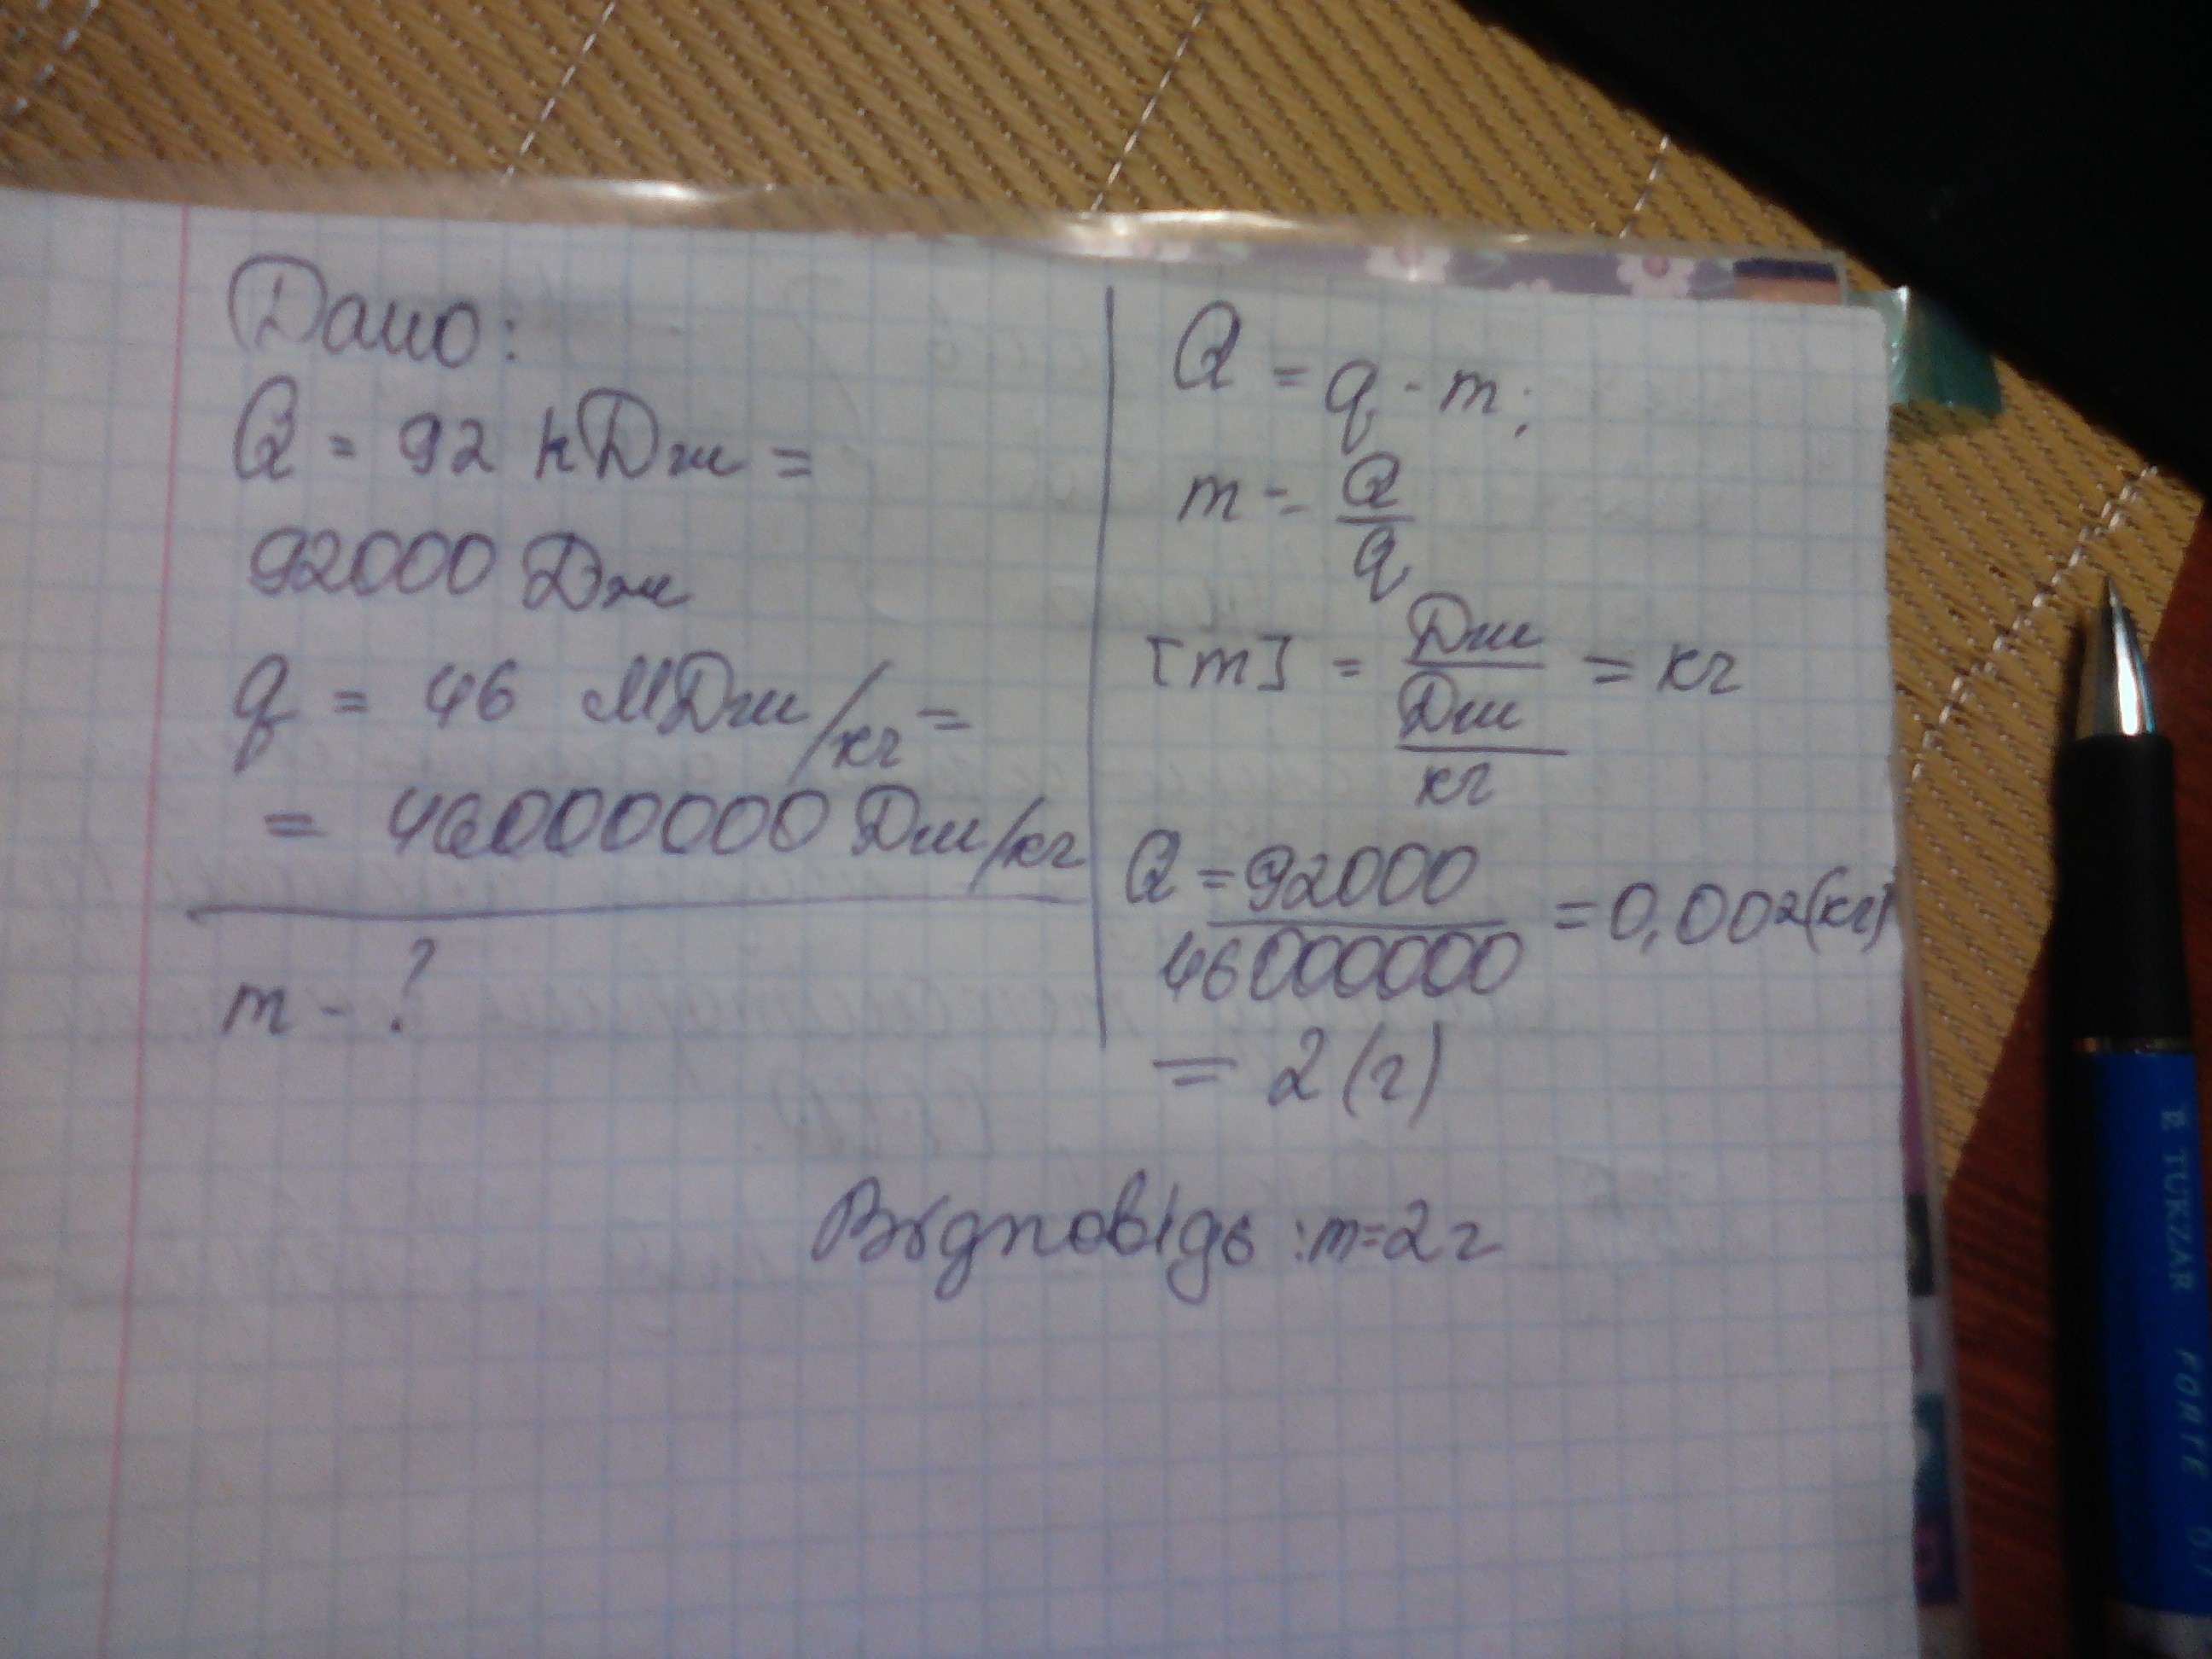 Дано:
Q = 92 кДж =
92000 Дж
q = 46 МДж/кг =
= 46000000 Дж/кг
m - ?
Q = q · m;
m = Q/q
[m] = Дж/(Дж/кг) = кг
Q = 92000/46000000 = 0,002(кг)
= 2 (г)
Відповідь : m = 2 г
TUKZAR FORTE 07